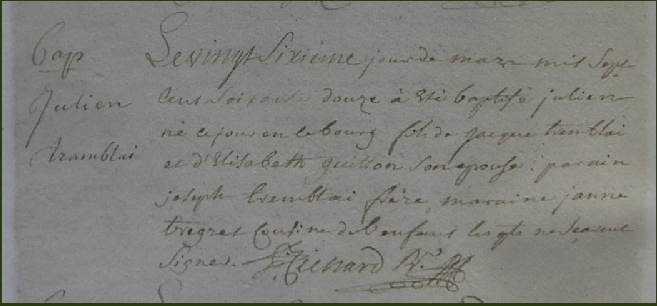 Bap
Julien
tramblai
Le vingt Sixieme jour de mars mil Sept
Cent Soixante douze à Eté baptisé julien
né ce jour en ce bourg fils de jacque tremblai
et d'Elisabeth guillon Son epouse : parain
joseph tremblai frère, maraine janne
tregret Cousine de l'enfant lesqls ne Scavent
Signer.